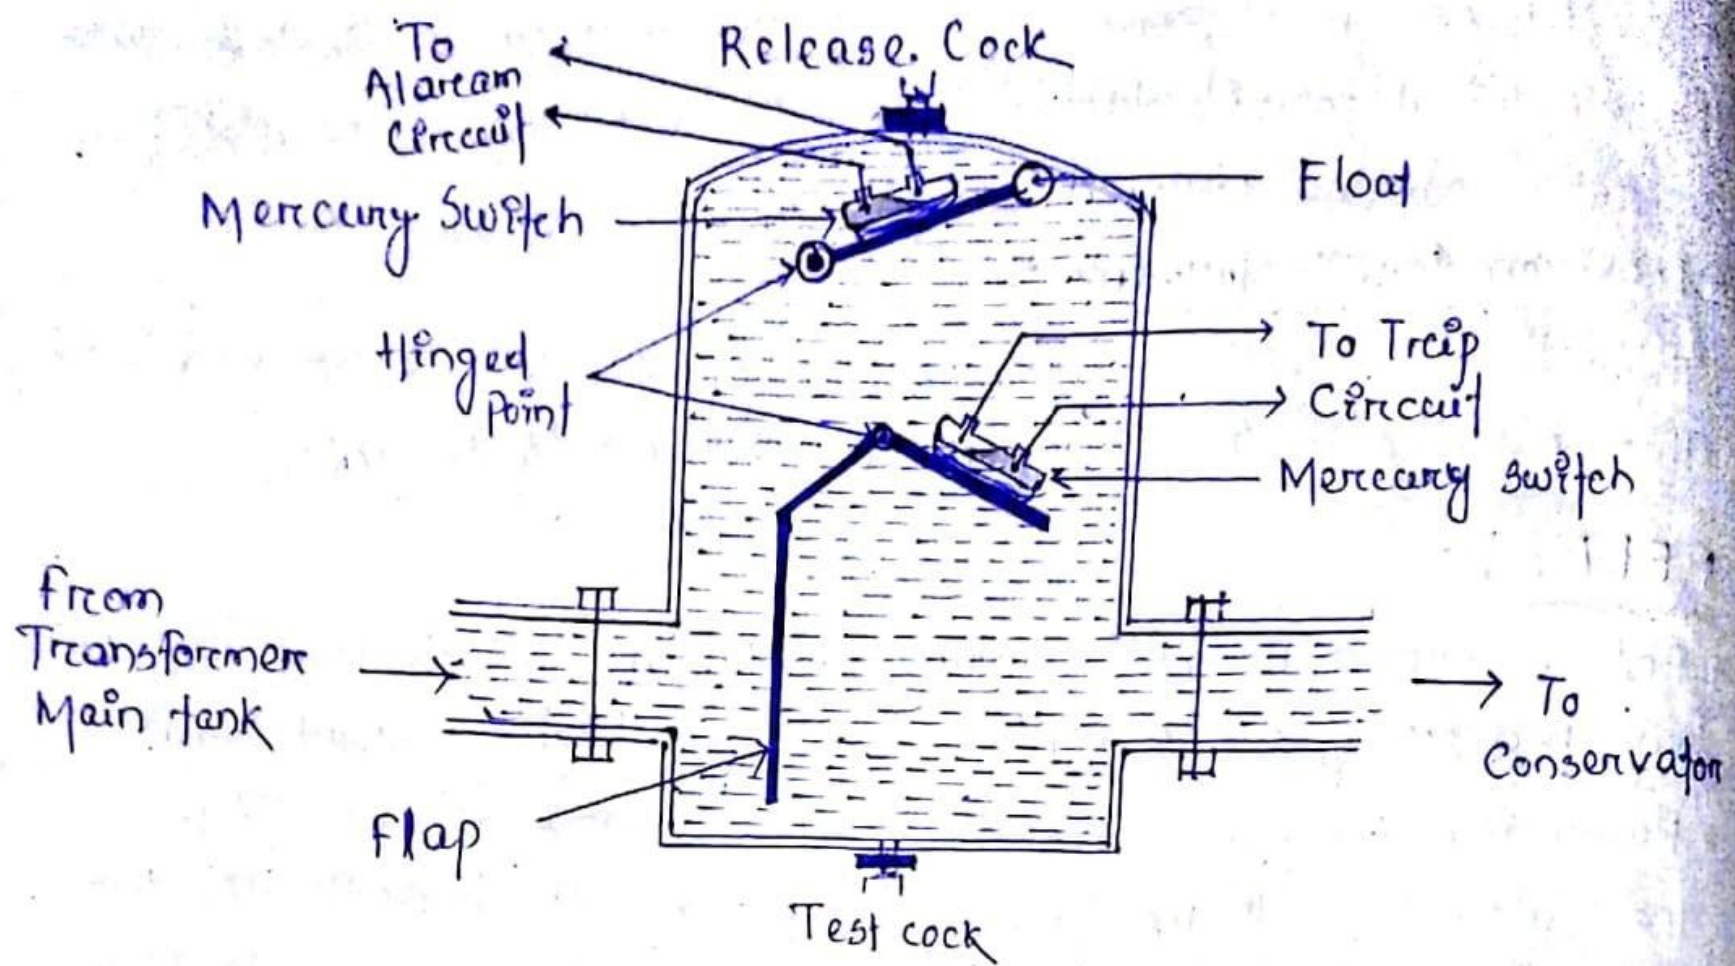 To
Alaream
Circcuit
Release. Cock
Float
Merccury Switch
Hinged
point
To Trcip
Circcuit
Merccury switch
From
Trcansformerc
Main tank
To
Conservator
Flap
Test cock